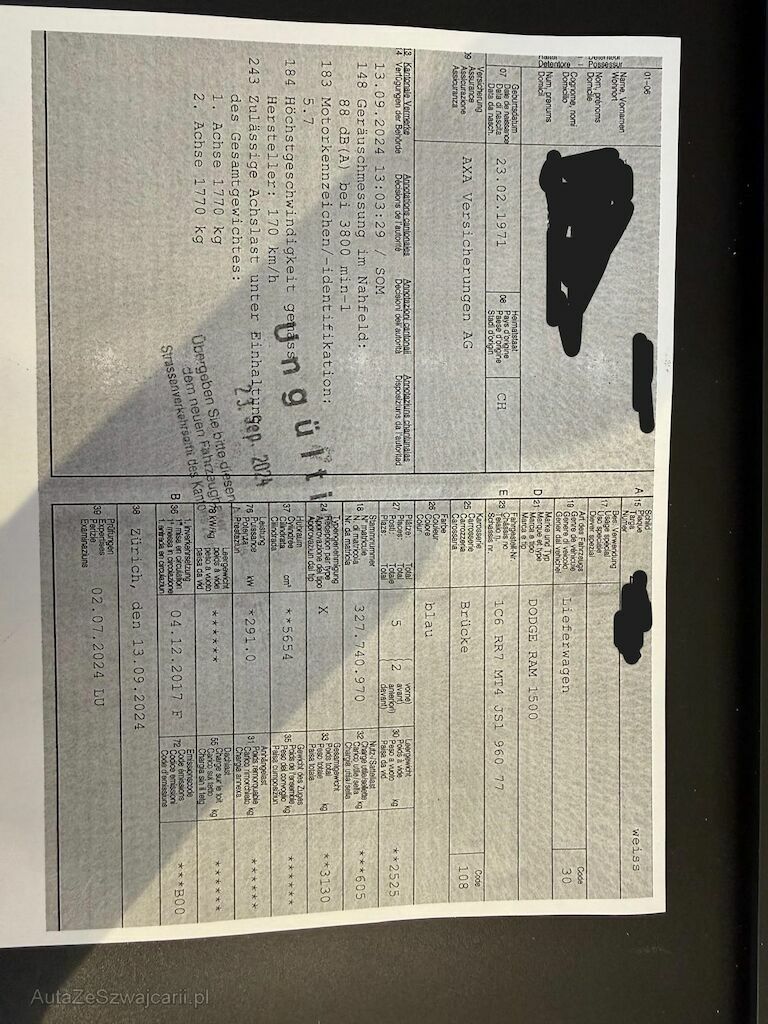 01-06
Name, Vornamen
Wohnort
Nom, prénoms
Domicile
Cognome, nomi
Domicilio
Num, prenums
Domicil
Possesseur
Detentore
Geburtsdatum
07 Date de naissance
Data di nascita
Data da nasch.
23.02.1971
Heimatstaat
08 Pays d'origine
Paese d'origine
Stadi d'origin
CH
Versicherung
09 Assurance
Assicurazione
Assicuranza
AXA Versicherungen AG
13 Kantonale Vermerke
14 Verfügungen der Behörde
Annotations cantonales
Décisions de l'autorité
Annotazioni cantonali
Decisioni dell'autorità
Annotaziuns chantunalas
Disposiziuns da l'autoritad
13.09.2024 13:03:29 / SOM
148 Geräuschmessung im Nahfeld:
88 dB(A) bei 3800 min-1
183 Motorkennzeichen/-identifikation:
5.7
184 Höchstgeschwindigkeit gemäss
Hersteller: 170 km/h
243 Zulässige Achslast unter Einhaltung
des Gesamtgewichtes:
1. Achse 1770 kg
2. Achse 1770 kg
Ungülti
23. Sep. 2024
Übergeben Sie bitte diesen
dem neuen Fahrzeug
Strassenverkehrsamt des Kant
A 15 Schild
Plaque
Targa
Numer
weiss
17 Bes. Verwendung
Usage spécial
Uso speciale
Diever spezial
19 Art des Fahrzeugs
Genre de véhicule
Genere del veicolo
Gener dal vehichel
Lieferwagen
Code
30
D 21 Marke und Typ
Marque et type
Marca e tipo
Marca e tip
DODGE RAM 1500
E 23 Fahrgestell-Nr.
Châssis n°
Telaio n.
Schassis nr.
1C6 RR7 MT4 JS1 960 77
25 Karosserie
Carrosserie
Carrozzeria
Carossaria
Brücke
Code
108
26 Farbe
Couleur
Colore
Colur
blau
27 Plätze: Total
Places: Total
Posti: Totale
Plazs: Total
5
vorne
avant
anteriori
davant
2
30 Leergewicht
Poids à vide
Peso a vuoto
Paisa da vid
kg
**2525
18 Stammnummer
N° matricule
N. di matricola
Nr. da matricla
327.740.970
32 Nutz-/Sattellast
Charge utile/sellette
Carico utile/sella
Chargia utila/sella
kg
***605
24 Typengenehmigung
Réception par type
Approvazione del tipo
Approvaziun dal tip
X
33 Gesamtgewicht
Poids total
Peso totale
Paisa totala
kg
**3130
37 Hubraum
Cylindrée
Cilindrata
Cilindrada
cm³
**5654
35 Gewicht des Zuges
Poids de l'ensemble
Peso del convoglio
Paisa cumposiziun
kg
******
76 Leistung
Puissance
Potenza
Prestaziun
kW
*291.0
31 Anhängelast
Poids remorquable
Carico rimorchiato
Chargia annexa
kg
******
78 kW/kg
Leergewicht
poids à vide
peso a vuoto
paisa da vid
******
55 Dachlast
Charge sur le toit
Carico sul tetto
Chargia sin il tetg
kg
******
B 36 1. Inverkehrsetzung
1re mise en circulation
1a messa in circolazione
1. entrada en circulaziun
04.12.2017 F
72 Emissionscode
Code émissions
Codice emissioni
Code d'emissiuns
***B00
38
Zürich, den 13.09.2024
39 Prüfungen
Expertises
Perizie
Examinaziuns
02.07.2024 LU
AutaZeSzwajcarii.pl